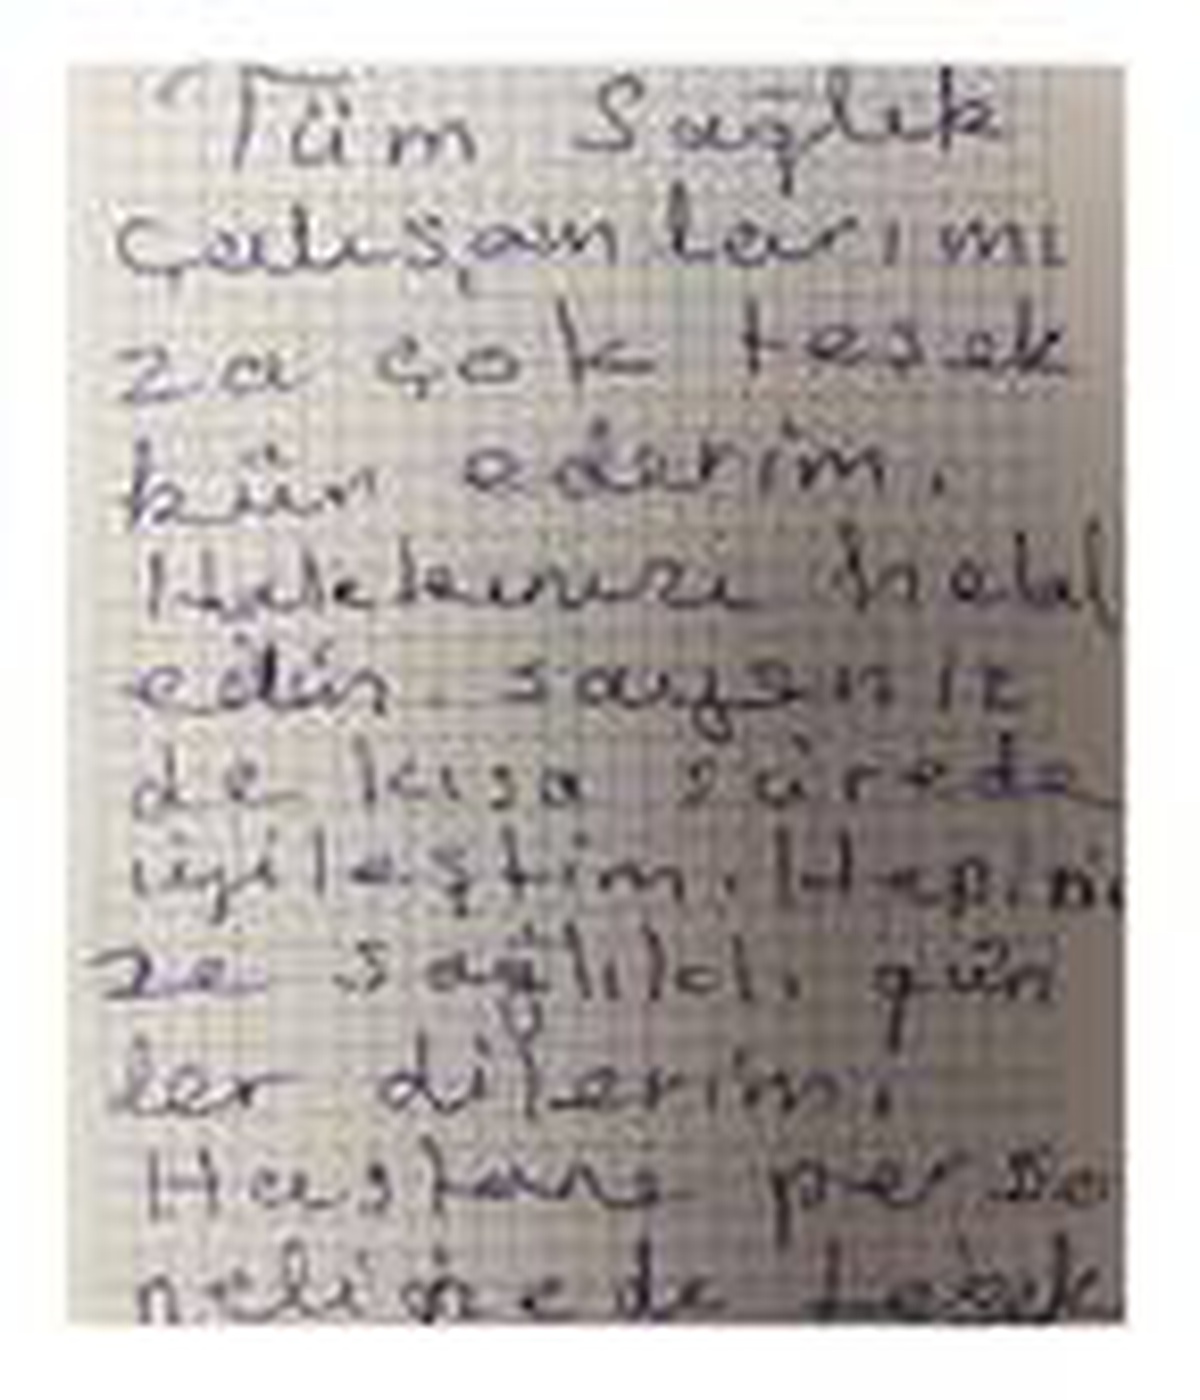 Tüm Sağlık
Çalışanlarımı
za çok teşek
kür ederim.
Hakkınızı helal
edin sayeniz
de kısa sürede
iyileştim. Hepini
ze sağlıklı gün
ler dilerim.
Hastane perso
neline de teşek